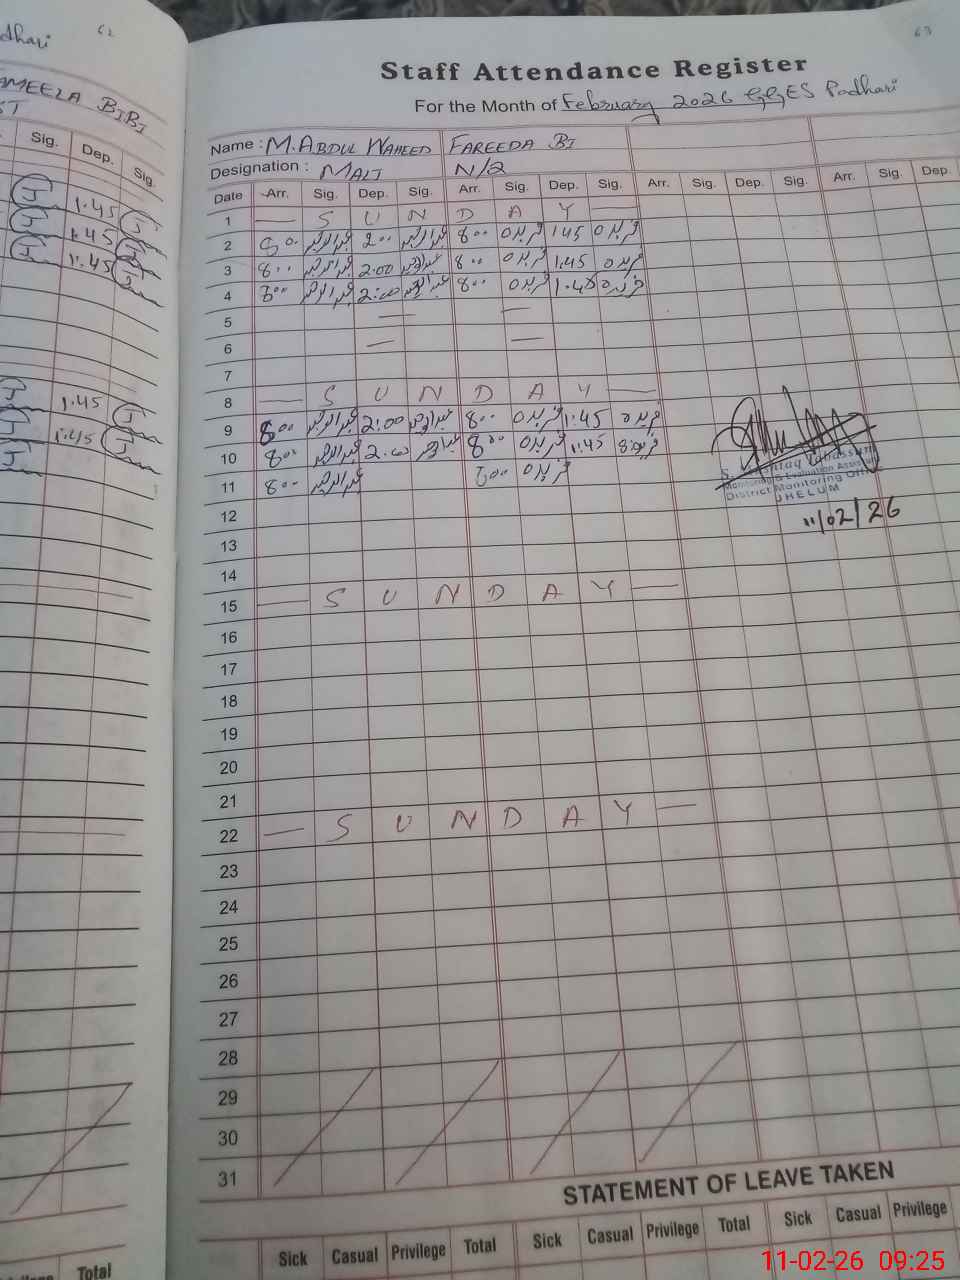 dhari
62
AMEELA BIBI
ST
Sig. Dep. Sig.
J 1.45 J
J 1.45 J
J 1.45 J
J 1.45 J
J 1.45 J
J
Total
63
Staff Attendance Register
For the Month of February 2026 GGES Padhari
Name : M. ABDUL WAHEED FAREEDA BI
Designation : MALI N/2
Date Arr. Sig. Dep. Sig. Arr. Sig. Dep. Sig. Arr. Sig. Dep. Sig. Arr. Sig. Dep.
1 — S U N D A Y —
2 8:00 عبدالوحید 2:00 عبدالوحید 8:00 فریدہ 1:45 فریدہ
3 8:00 عبدالوحید 2:00 عبدالوحید 8:00 فریدہ 1:45 فریدہ
4 8:00 عبدالوحید 2:00 عبدالوحید 8:00 فریدہ 1:45 فریدہ
5 — —
6 — —
7
8 — S U N D A Y —
9 8:00 عبدالوحید 2:00 عبدالوحید 8:00 فریدہ 1:45 فریدہ
10 8:00 عبدالوحید 2:00 عبدالوحید 8:00 فریدہ 1:45 فریدہ
11 8:00 عبدالوحید 8:00 فریدہ
Monitoring & Evaluation Assis
District Monitoring Office
JHELUM
11/02/26
12
13
14
15 — S U N D A Y —
16
17
18
19
20
21
22 — S U N D A Y —
23
24
25
26
27
28
29
30
31
STATEMENT OF LEAVE TAKEN
Sick Casual Privilege Total Sick Casual Privilege
11-02-26 09:25